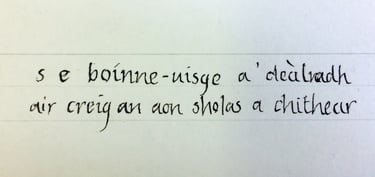 s e boinne-uisge a' deàlradh
air creig an aon sholas a chithear